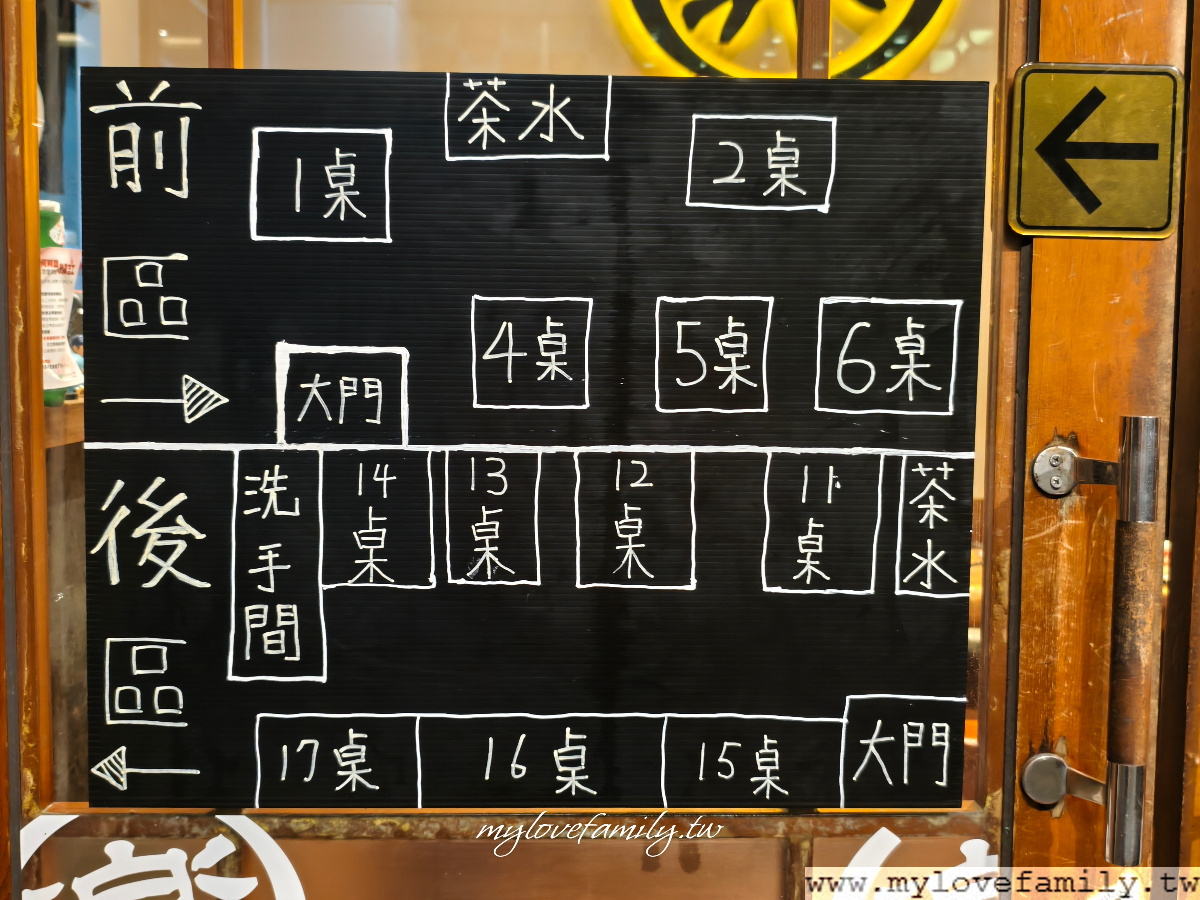 前區
茶水
1桌
2桌
4桌
5桌
6桌
大門
後區
洗手間
14桌
13桌
12桌
11桌
茶水
17桌
16桌
15桌
大門
mylovefamily.tw
www.mylovefamily.tw